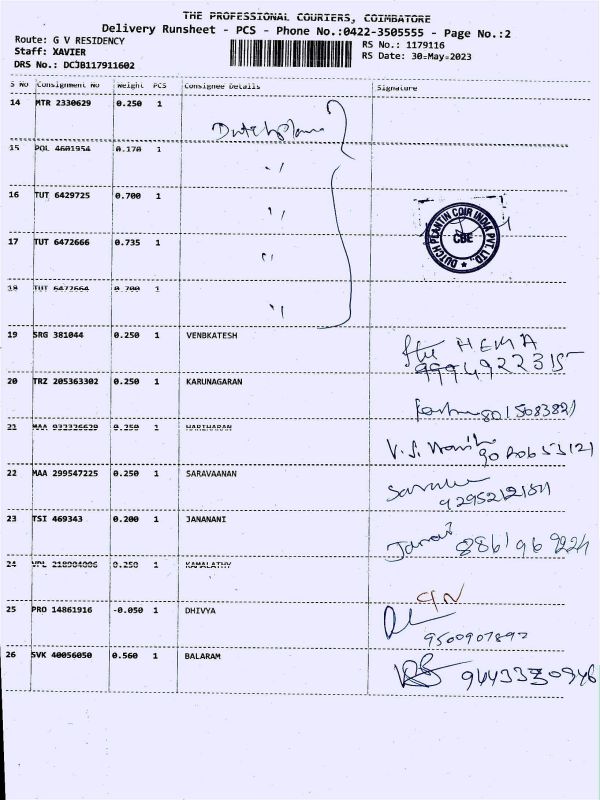 THE PROFESSIONAL COURIERS, COIMBATORE
Delivery Runsheet - PCS - Phone No.:0422-3505555 - Page No.:2
Route: G V RESIDENCY
Staff: XAVIER
DRS No.: DCJB117911602
RS No.: 1179116
RS Date: 30-May-2023
S No Consignment No Weight PCS Consignee Details Signature
14 MTR 2330629 0.250 1
15 POL 4601954 0.170 1
16 TUT 6429725 0.700 1
17 TUT 6472666 0.735 1
DUTCH PLANTIN COIR INDIA PVT. LTD.,
CBE
18 TUT 6472664 0.700 1
19 SRG 381044 0.250 1 VENBKATESH
HEMA
9994922315
20 TRZ 205363302 0.250 1 KARUNAGARAN
21 MAA 0.250 1 HARIHARAN
22 MAA 299547225 0.250 1 SARAVAANAN
23 TSI 469343 0.200 1 JANANANI
24 0.250 1 KAMALATHY
25 PRO 14861916 -0.050 1 DHIVYA
26 SVK 40056050 0.560 1 BALARAM
9443330946